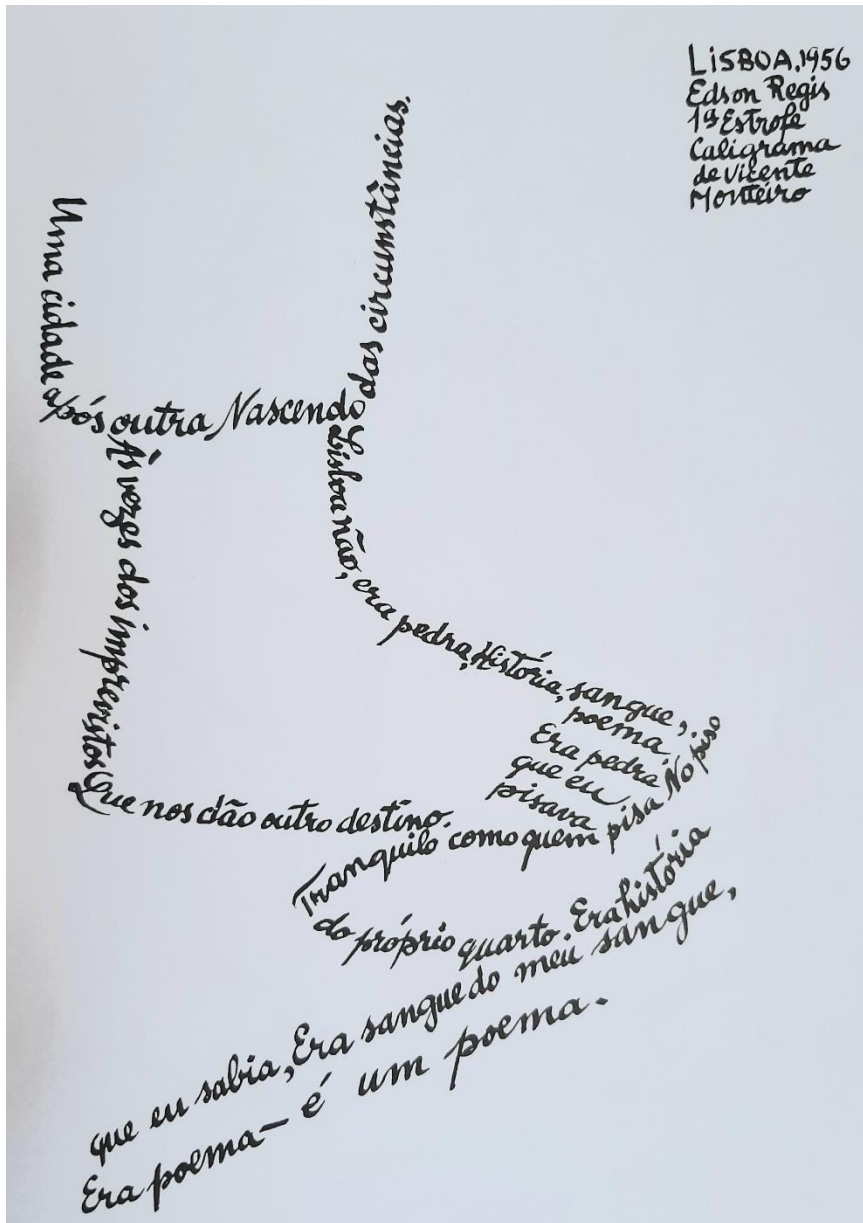 LISBOA, 1956
Edson Regis
1ª Estrofe
Caligrama
de Vicente
Monteiro
Uma cidade após outra Nascendo
das circunstâncias.
Às vezes dos imprevistos
Que nos dão outro destino.
Lisboa não, era pedra, História, sangue,
poema.
Era pedra
que eu
pisava
Tranquilo como quem pisa No piso
do próprio quarto. Era história
que eu sabia, Era sangue do meu sangue,
Era poema – é um poema.